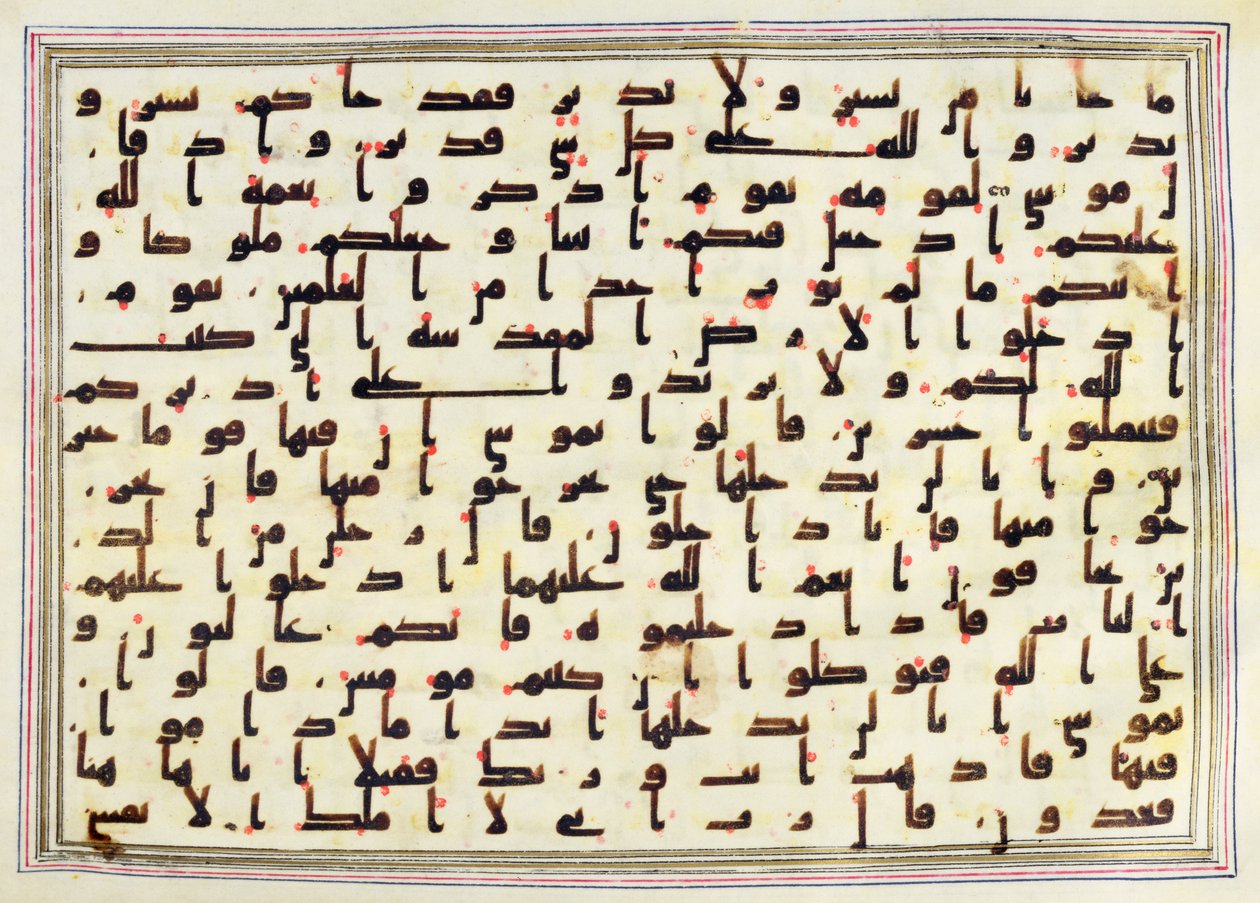 ما جا نا من بشير و لا نذير فقد جاكم بشير و
نذير و الله على كل شى قدير و اذ قا
ل موسى لقومه يقوم اذكروا نعمة الله
عليكم اذ جعل فيكم انبيا و جعلكم ملوكا و
اتيكم ما لم يوت احدا من العلمين يقوم
ادخلوا الارض المقدسة التى كتب
الله لكم و لا ترتدوا على ادبركم
فتنقلبوا خسرين قالوا يموسى ان فيها قوما جبر
ين و انا لن ندخلها حتى يخرجوا منها فان يخر
جوا منها فانا دخلون قال رجلن من الذ
ين يخافون انعم الله عليهما ادخلوا عليهم
الباب فاذا دخلتموه فانكم غلبون و
على الله فتوكلوا ان كنتم مومنين قالوا
يموسى انا لن ندخلها ابدا ما داموا
فيها فاذهب انت و ربك فقتلا انا ههنا
قعدون قال رب انى لا املك الا نفسى